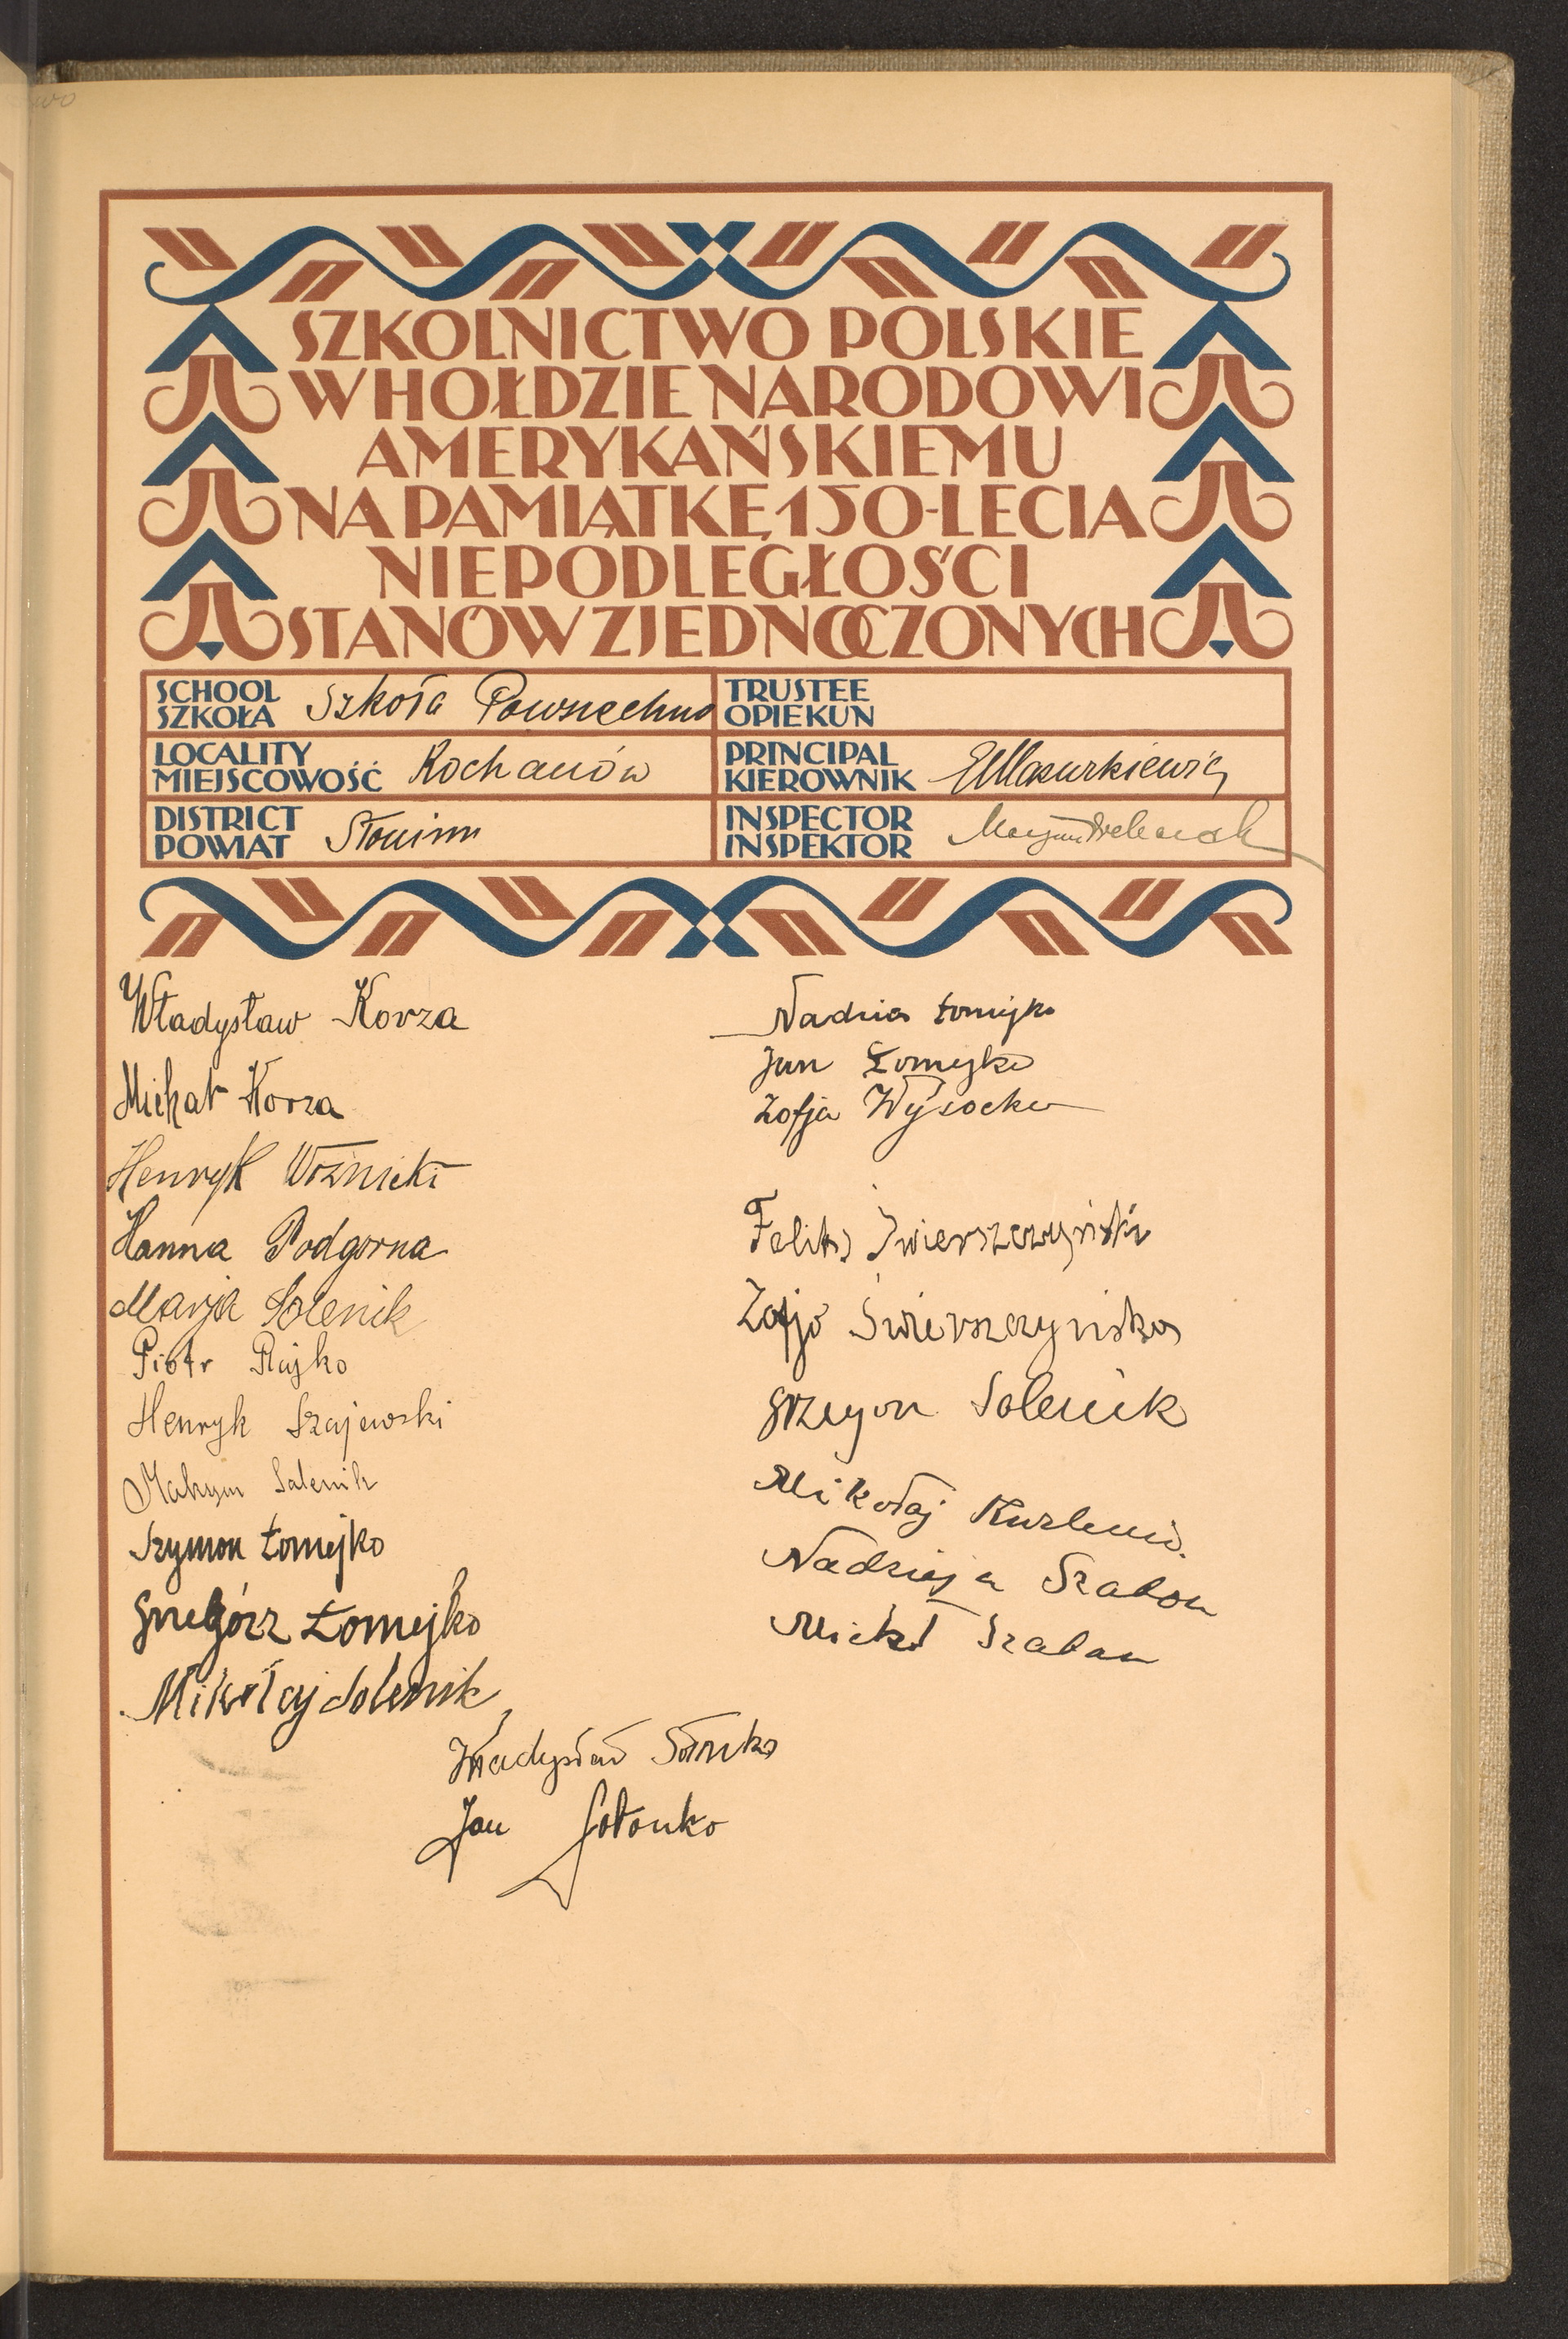 SZKOLNICTWO POLSKIE
W HOŁDZIE NARODOWI
AMERYKAŃSKIEMU
NA PAMIĄTKĘ 150-LECIA
NIEPODLEGŁOŚCI
STANÓW ZJEDNOCZONYCH
SCHOOL
SZKOŁA Szkoła Powszechna
TRUSTEE
OPIEKUN
LOCALITY
MIEJSCOWOŚĆ Kochanów
PRINCIPAL
KIEROWNIK EMazurkiewicz
DISTRICT
POWIAT Słonim
INSPECTOR
INSPEKTOR
Władysław Korza
Michał Korza
Henryk Woźnicki
Hanna Podgorna
Marja Solenik
Piotr Rajko
Henryk Szajewski
Maksym Solenik
Szymon Łomejko
Grzegórz Łomejko
Mikołaj Solenik
Nadzia Łomejko
Jan Łomejko
Zofja Wysocka
Feliks Świerszczyński
Zofja Świerszczyńska
Grzegorz Solenik
Mikołaj
Nadzieja Szaban
Michał Szaban
Władysław
Jan Sołonko